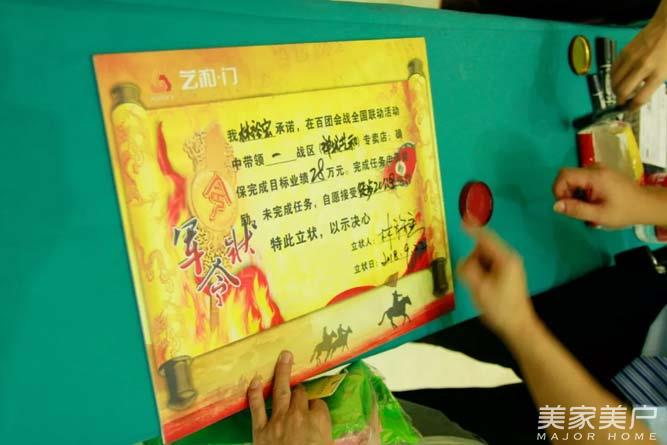 艺和·门
我 承诺，在百团会战全国联动活动
中带领 一 战区 专卖店；确
保完成目标业绩28万元。完成任务
励，未完成任务，自愿接受
特此立状，以示决心
立状人：
立状日：
军令状
令
美家美户
MAJOR HOME